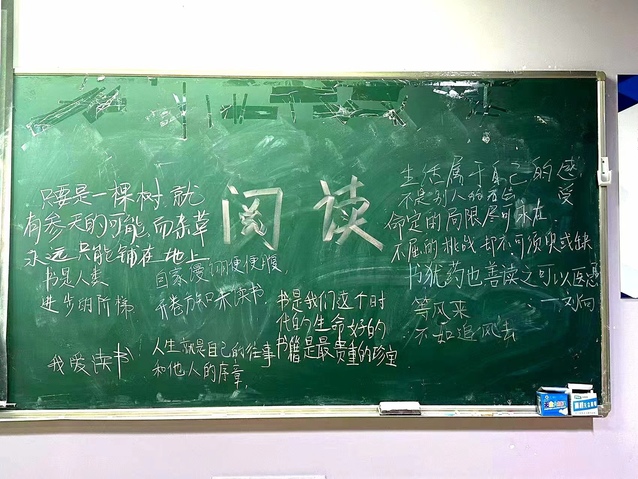 阅读
只要是一棵树,就
有参天的可能,而杂草
永远只能铺在地上
书是人类
进步的阶梯
我爱读书
自家漫 便便腹,
开卷方知未读书.
人生就是自己的往事
和他人的序章.
书是我们这个时
代的生命好的
书籍是最贵重的珍宝
生活属于自己的感
受
不是别人的看法
命定的局限尽可永在
不屈的挑战却不可须臾或缺
书犹药也善读之可以医愚
——刘向
等风来
不如追风去